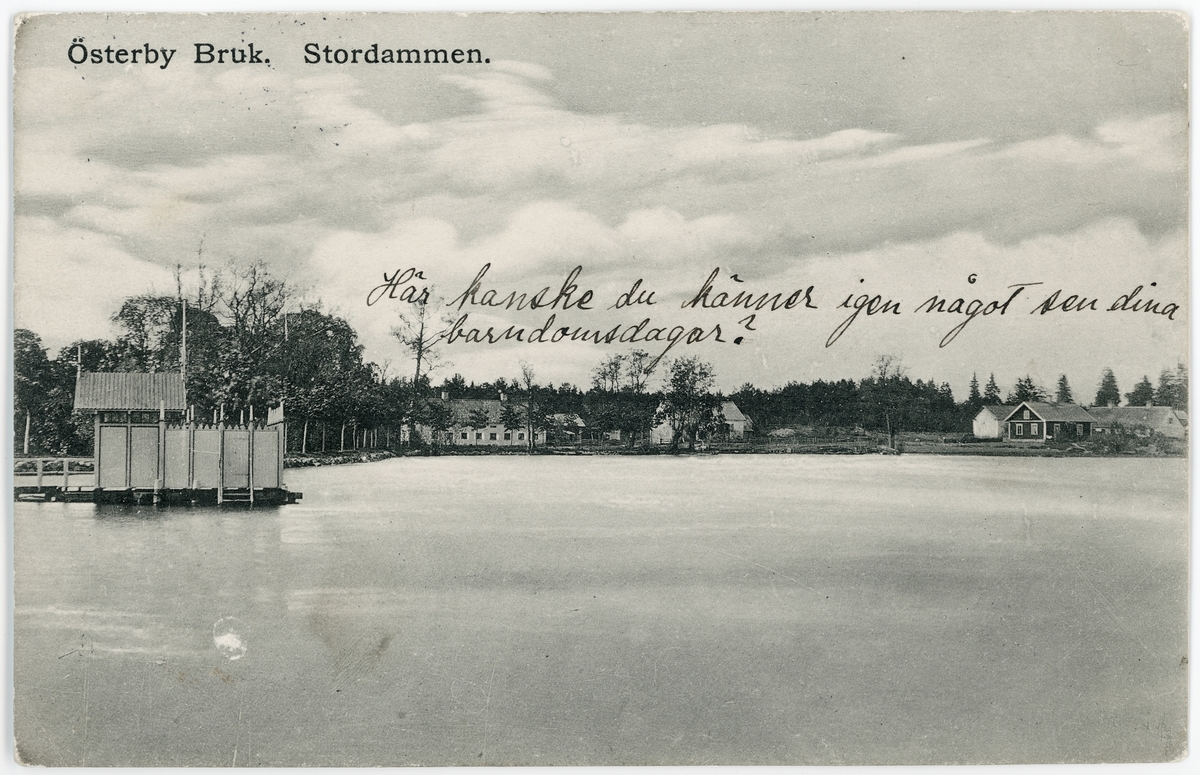 Österby Bruk. Stordammen.
Här kanske du känner igen något sen dina
barndomsdagar?